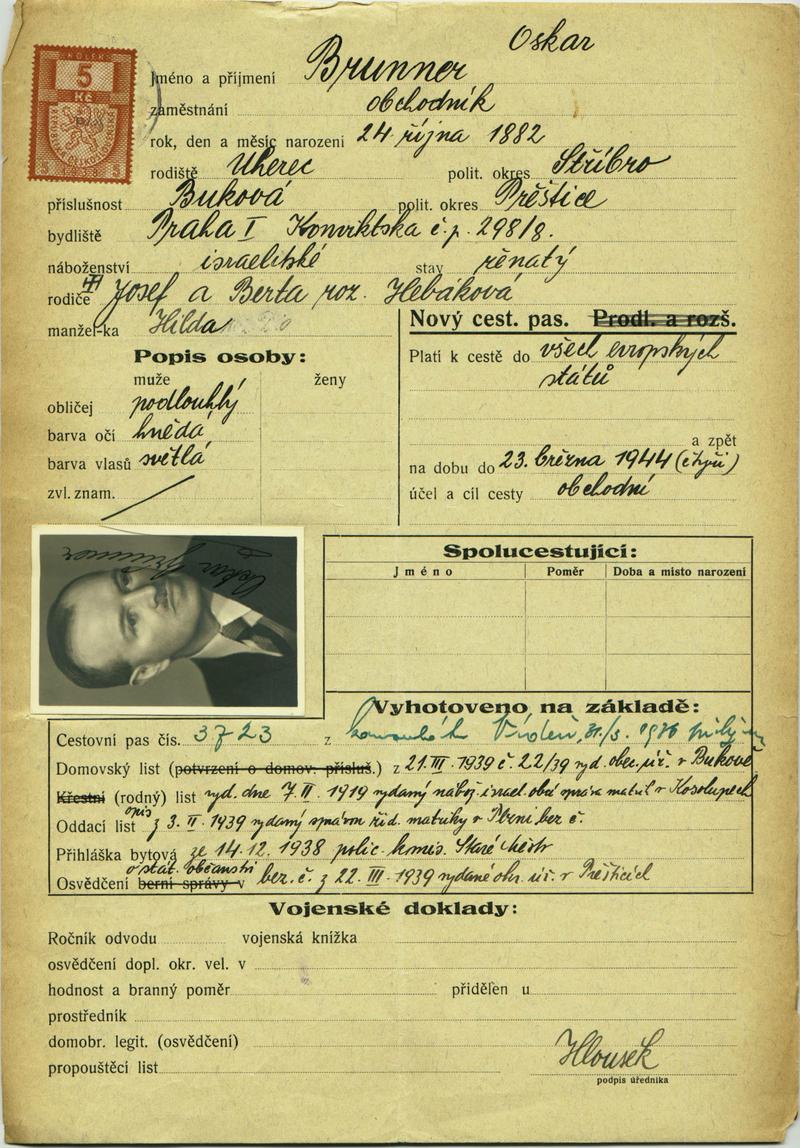 KOLEK
5
Kč
REPUBLIKA ČESKOSLOVENSKÁ
1938
Oskar
Jméno a příjmení Brunner
zaměstnání obchodník
rok, den a měsíc narození 24. října 1882
rodiště Uherec polit. okres Stříbro
příslušnost Buková polit. okres Přeštice
bydliště Praha I Konviktska č. p. 298/8.
náboženství israelitské stav ženatý
rodiče Josef a Berta roz. Hebáková
manžel-ka Hilda
Nový cest. pas. Prodl. a rozš.
Popis osoby:
muže ženy
obličej podlouhlý
barva očí hnědá
barva vlasů světlá
zvl. znam.
Platí k cestě do všech evropských
států
a zpět
na dobu do 23. března 1944 (čtyři)
účel a cíl cesty obchodní
Oskar Brunner
Spolucestující:
Jméno Poměr Doba a místo narození
Vyhotoveno na základě:
Cestovní pas čís. 3723 z
Domovský list (potvrzení o domov. přísluš.) z 21. III. 1939 č. 22/39 vyd. obec. úř. v Bukové
Křestní (rodný) list vyd. dne 7. II. 1919 vydaný nábož. israel. obcí správa matrik v Kosolupech
opis
Oddací list z 3. II. 1939 vydaný správou žid. matriky v Plzni bez č.
Přihláška bytová ze 14. 12. 1938 polic. komis. Staré Město
o stát. občanství
Osvědčení berní správy v bez. č. z 22. III. 1939 vydané okr. úř. v Přešticích
Vojenské doklady:
Ročník odvodu vojenská knížka
osvědčení dopl. okr. vel. v
hodnost a branný poměr přidělen u
prostředník
domobr. legit. (osvědčení)
propouštěcí list
Hlousek
podpis úředníka